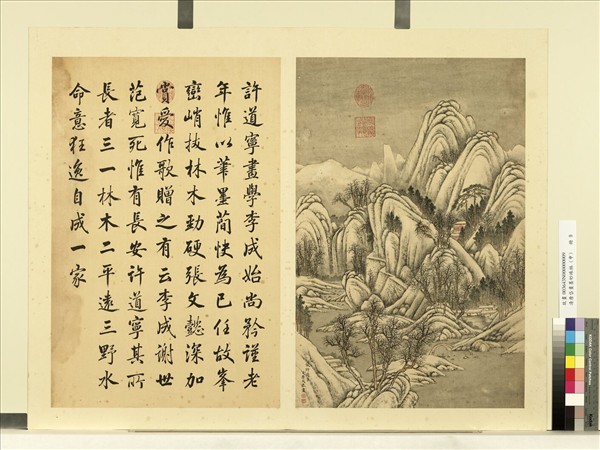 許道寧畫學李成始尚矜謹老
年惟以筆墨簡快為己任故峯
巒峭拔林木勁硬張文懿深加
賞愛作歌贈之有云李成謝世
范寬死惟有長安許道寧其所
長者三一林木二平遠三野水
命意狂逸自成一家